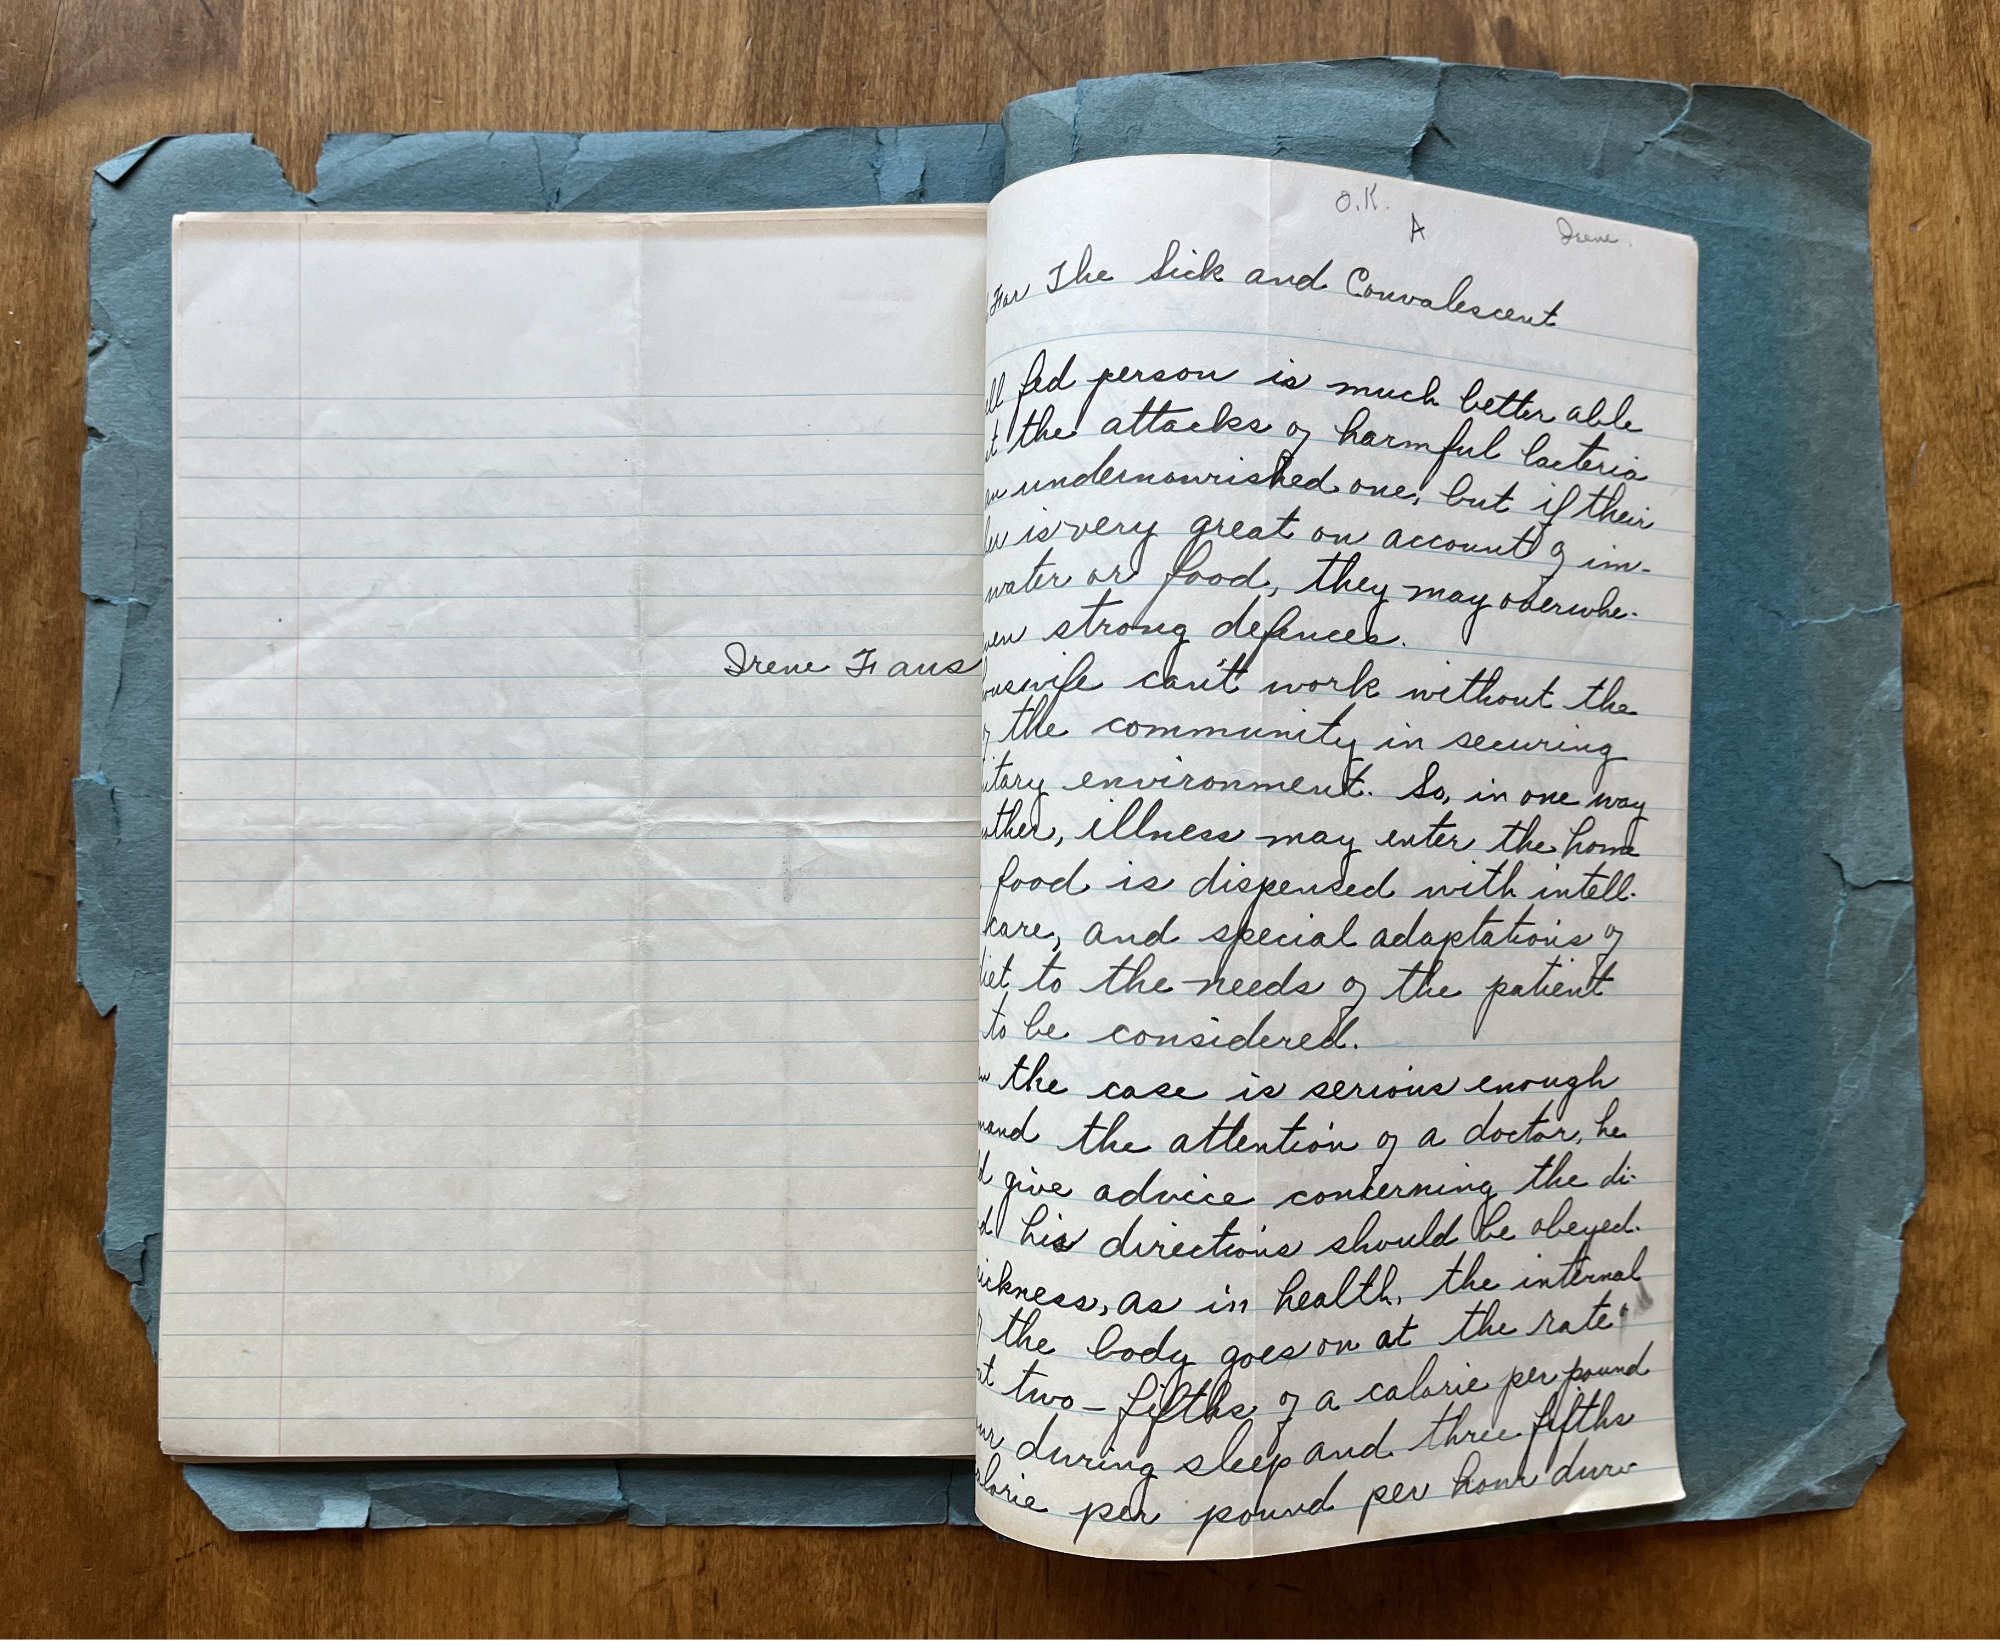 Irene Faus
O.K.
A
Irene.
For The Sick and Convalescent
ell fed person is much better able
t the attacks of harmful bacteria
an undernourished one, but if their
ber is very great on account of im-
water or food, they may overwhe-
ven strong defences.
ousewife can't work without the
the community in securing
itary environment. So, in one way
nother, illness may enter the home
food is dispensed with intell-
care, and special adaptations of
diet to the needs of the patient
to be considered.
en the case is serious enough
mand the attention of a doctor, he
d give advice concerning the di-
d his directions should be obeyed.
sickness, as in health, the internal
the body goes on at the rate
ut two-fifths of a calorie per pound
our during sleep and three fifths
alorie per pound per hour dur-